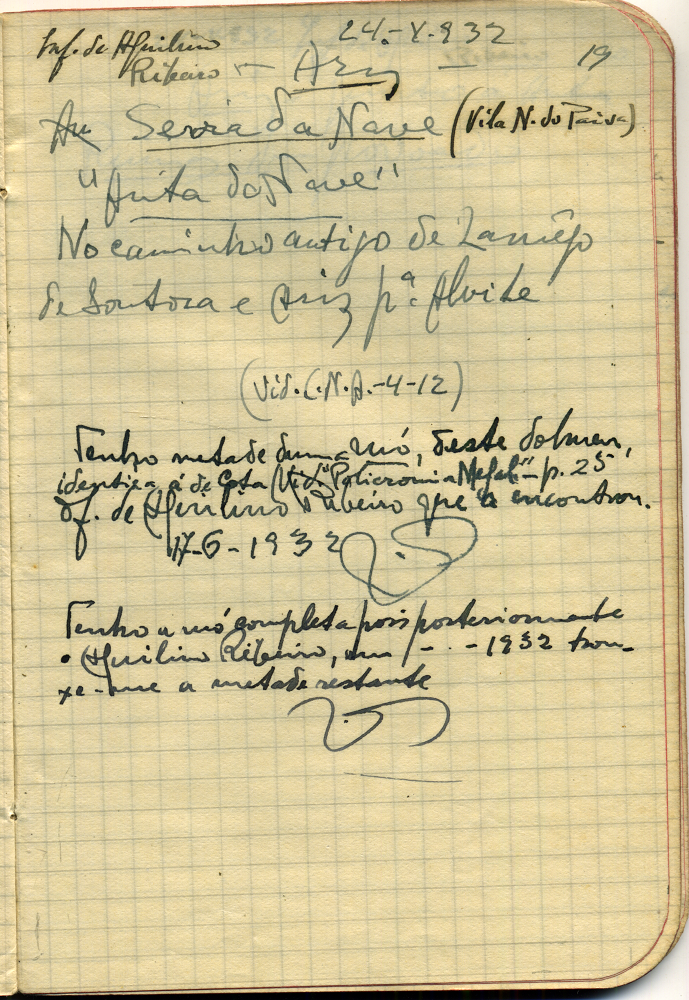 24.-X-932
19
Inf. de Aquilino
Ribeiro — Ariz —
Serra da Nave (Vila N. do Paiva)
"Anta da Nave"
No caminho antigo de Lamêgo
de Soutosa e Ariz pª. Alvite
(Vid. C.N.A.-4-12)
Tenho metade duma mó, deste dolmen,
identica á de Cota (Vid. "Policromia Megal" - p. 25
Of. de Aquilino Ribeiro que a encontrou.
17-6-1932
Tenho a mó completa pois posteriormente
o Aquilino Ribeiro, em / - . - 1932 trou-
xe-me a metade restante